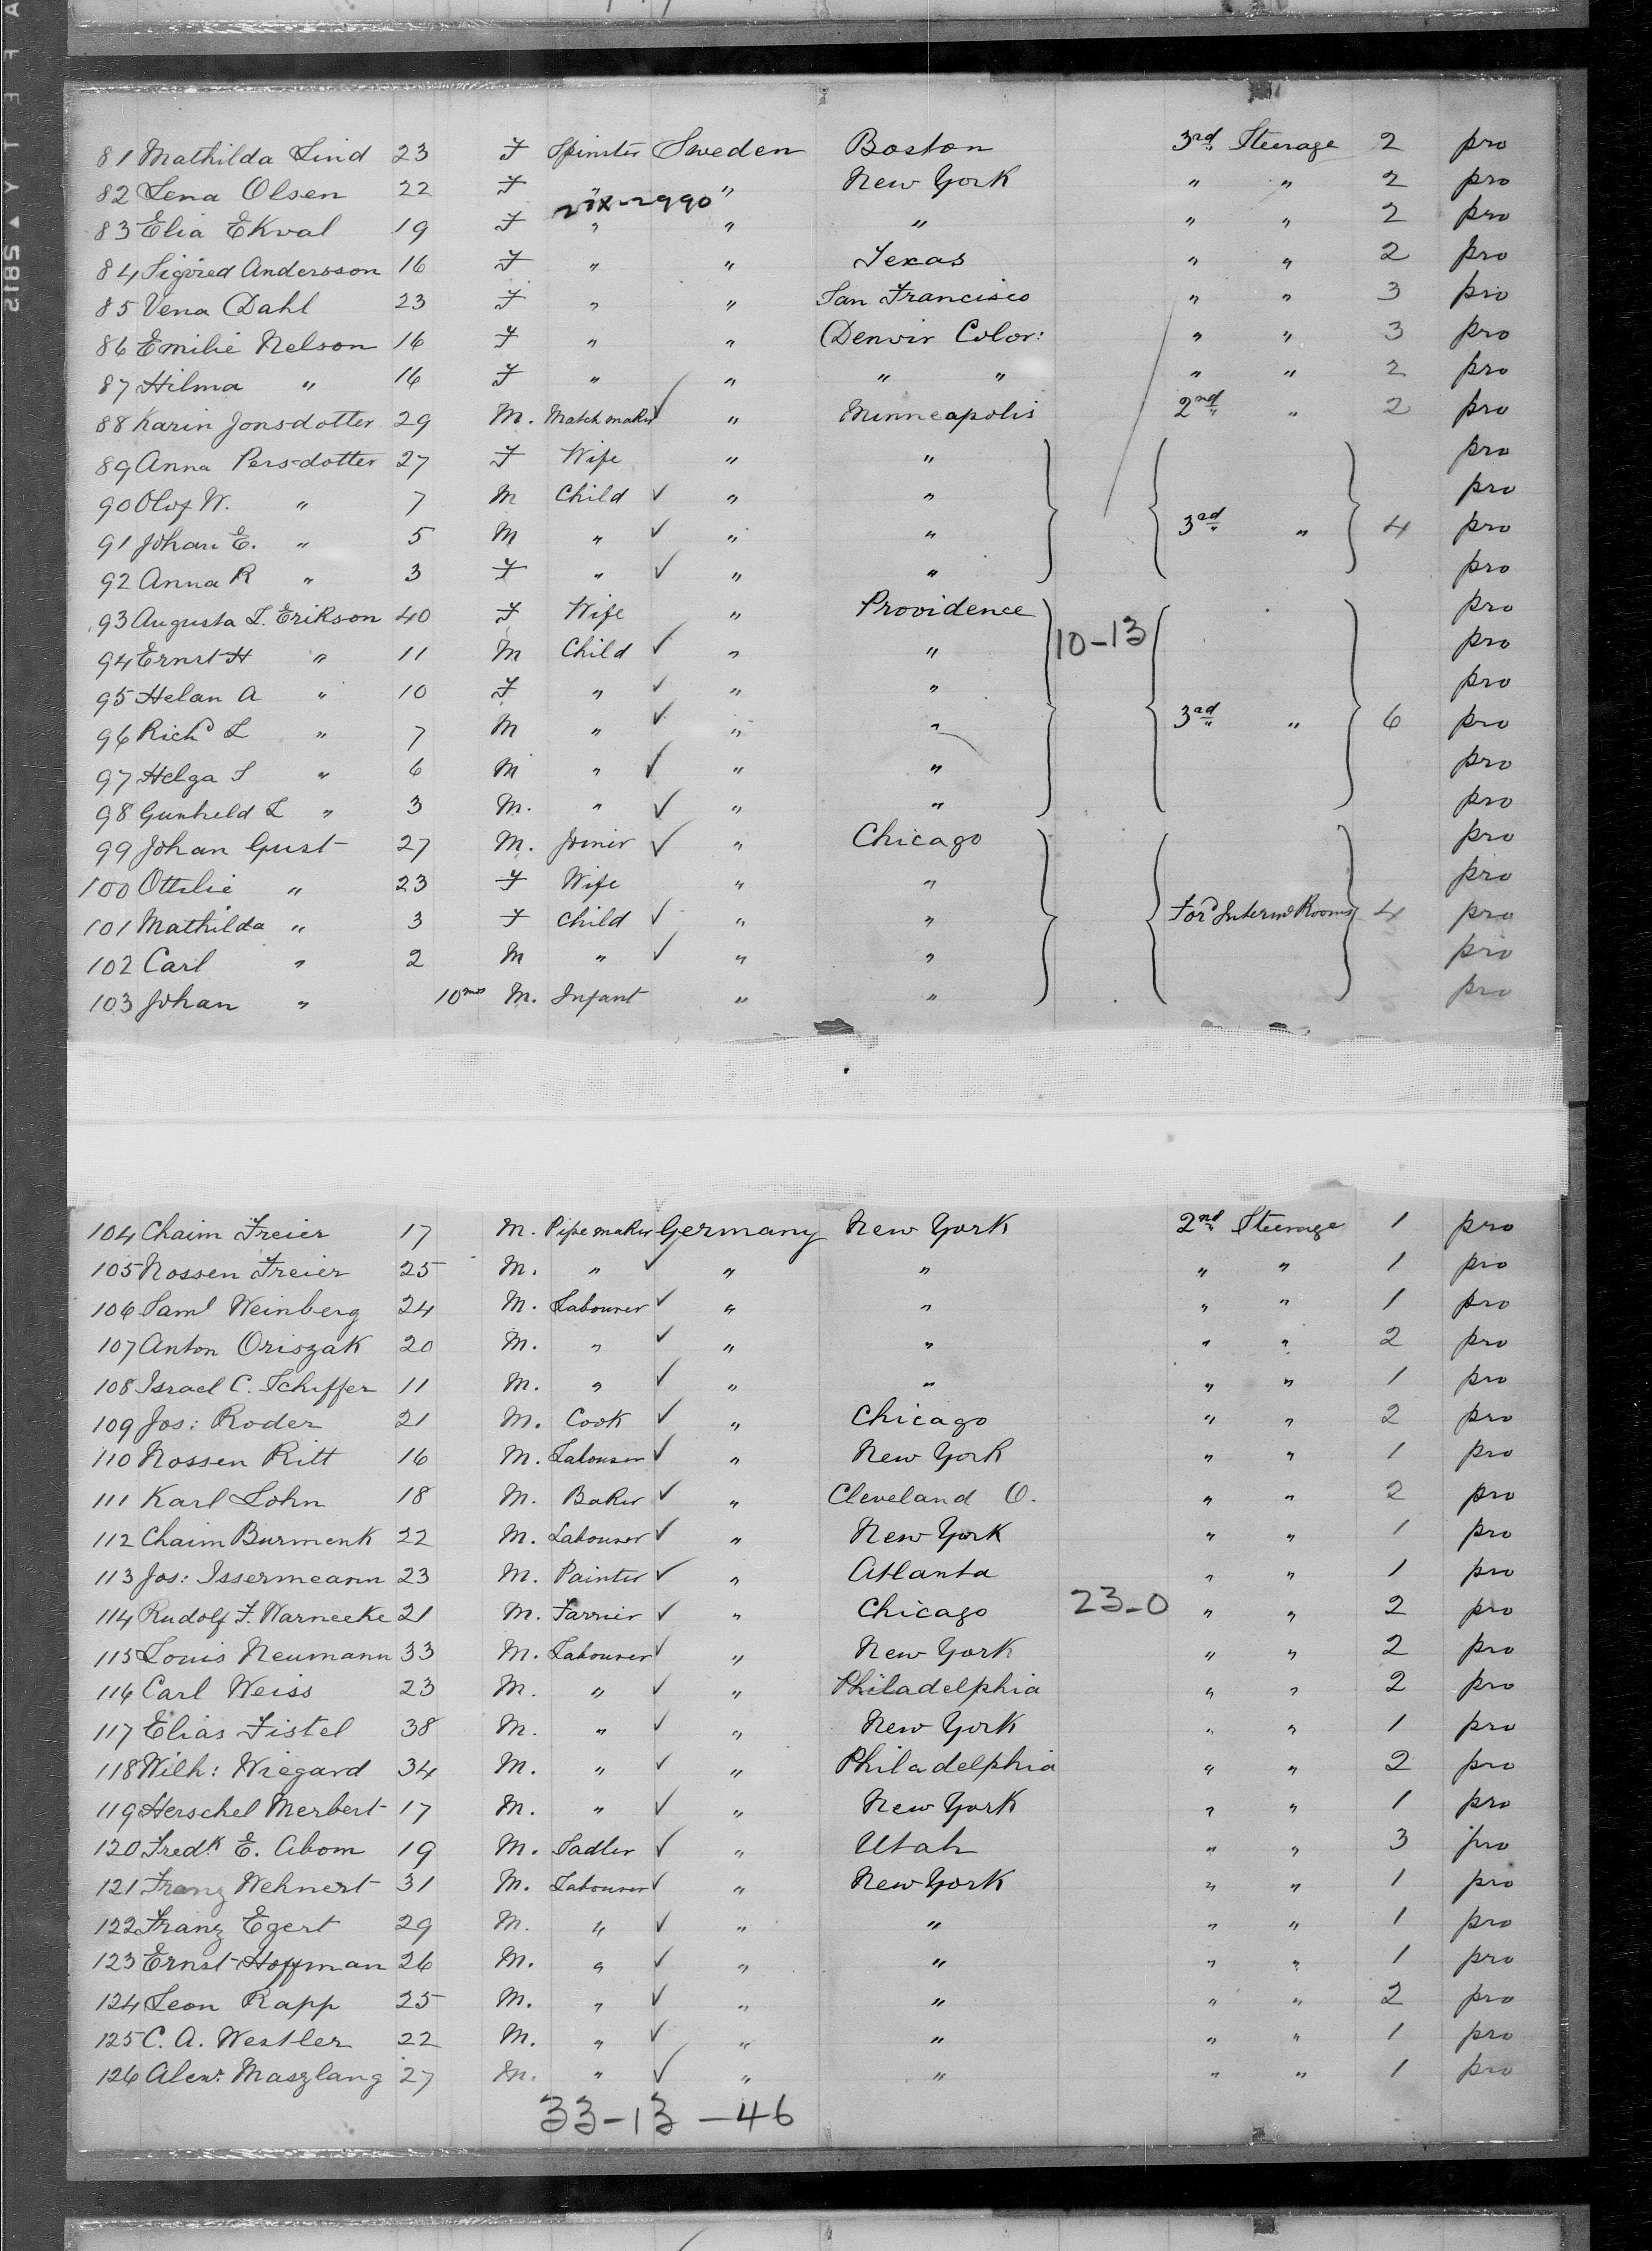 81 Mathilda Lind 23 F Spinster Sweden Boston 3rd Steerage 2 pro
82 Lena Olsen 22 F " " New York " " 2 pro
21X-2990
83 Elia Ekval 19 F " " " " " 2 pro
84 Sigvied Andersson 16 F " " Texas " " 2 pro
85 Vena Dahl 23 F " " San Francisco " " 3 pro
86 Emilie Nelson 16 F " " Denvir Color: " " 3 pro
87 Hilma " 16 F " " " " " " 2 pro
88 Karin Jonsdotter 29 M. Match maker " Minneapolis 2nd " 2 pro
89 Anna Persdotter 27 F Wife " " pro
90 Olof W. " 7 M Child " " pro
91 Johan E. " 5 M " " " 3rd " 4 pro
92 Anna R " 3 F " " " pro
93 Augusta L. Erikson 40 F Wife " Providence pro
94 Ernst H " 11 M Child " " 10-13 pro
95 Helan A " 10 F " " " pro
96 Richd L " 7 M " " " 3rd " 6 pro
97 Helga S " 6 M " " " pro
98 Gunheld L " 3 M. " " " pro
99 Johan Gust 27 M. Joiner " Chicago pro
100 Ottilie " 23 F Wife " " pro
101 Mathilda " 3 F Child " " Ford Intermd Rooms 4 pro
102 Carl " 2 M " " " pro
103 Johan " 10mos M. Infant " " pro
104 Chaim Freier 17 M. Pipe maker Germany New York 2nd Steerage 1 pro
105 Nossen Freier 25 M. " " " " " 1 pro
106 Saml Weinberg 24 M. Labourer " " " " 1 pro
107 Anton Oriszak 20 M. " " " " " 2 pro
108 Israel C. Schiffer 11 M. " " " " " 1 pro
109 Jos: Roder 21 M. Cook " Chicago " " 2 pro
110 Nossen Ritt 16 M. Labourer " New York " " 1 pro
111 Karl Lohn 18 M. Baker " Cleveland O. " " 2 pro
112 Chaim Burmenk 22 M. Labourer " New York " " 1 pro
113 Jos: Issermeann 23 M. Painter " Atlanta " " 1 pro
114 Rudolf F. Warnecke 21 M. Farrier " Chicago 23-0 " " 2 pro
115 Louis Neumann 33 M. Labourer " New York " " 2 pro
116 Carl Weiss 23 M. " " Philadelphia " " 2 pro
117 Elias Fistel 38 M. " " New York " " 1 pro
118 Wilh: Wiegard 34 M. " " Philadelphia " " 2 pro
119 Herschel Merbert 17 M. " " New York " " 1 pro
120 Fredk E. Abom 19 M. Sadler " Utah " " 3 pro
121 Franz Wehnert 31 M. Labourer " New York " " 1 pro
122 Franz Egert 29 M. " " " " " 1 pro
123 Ernst Hoffman 26 M. " " " " " 1 pro
124 Leon Rapp 25 M. " " " " " 2 pro
125 C. A. Westler 22 M. " " " " " 1 pro
126 Alexr. Maszlang 27 M. " " " " " 1 pro
33-13-46